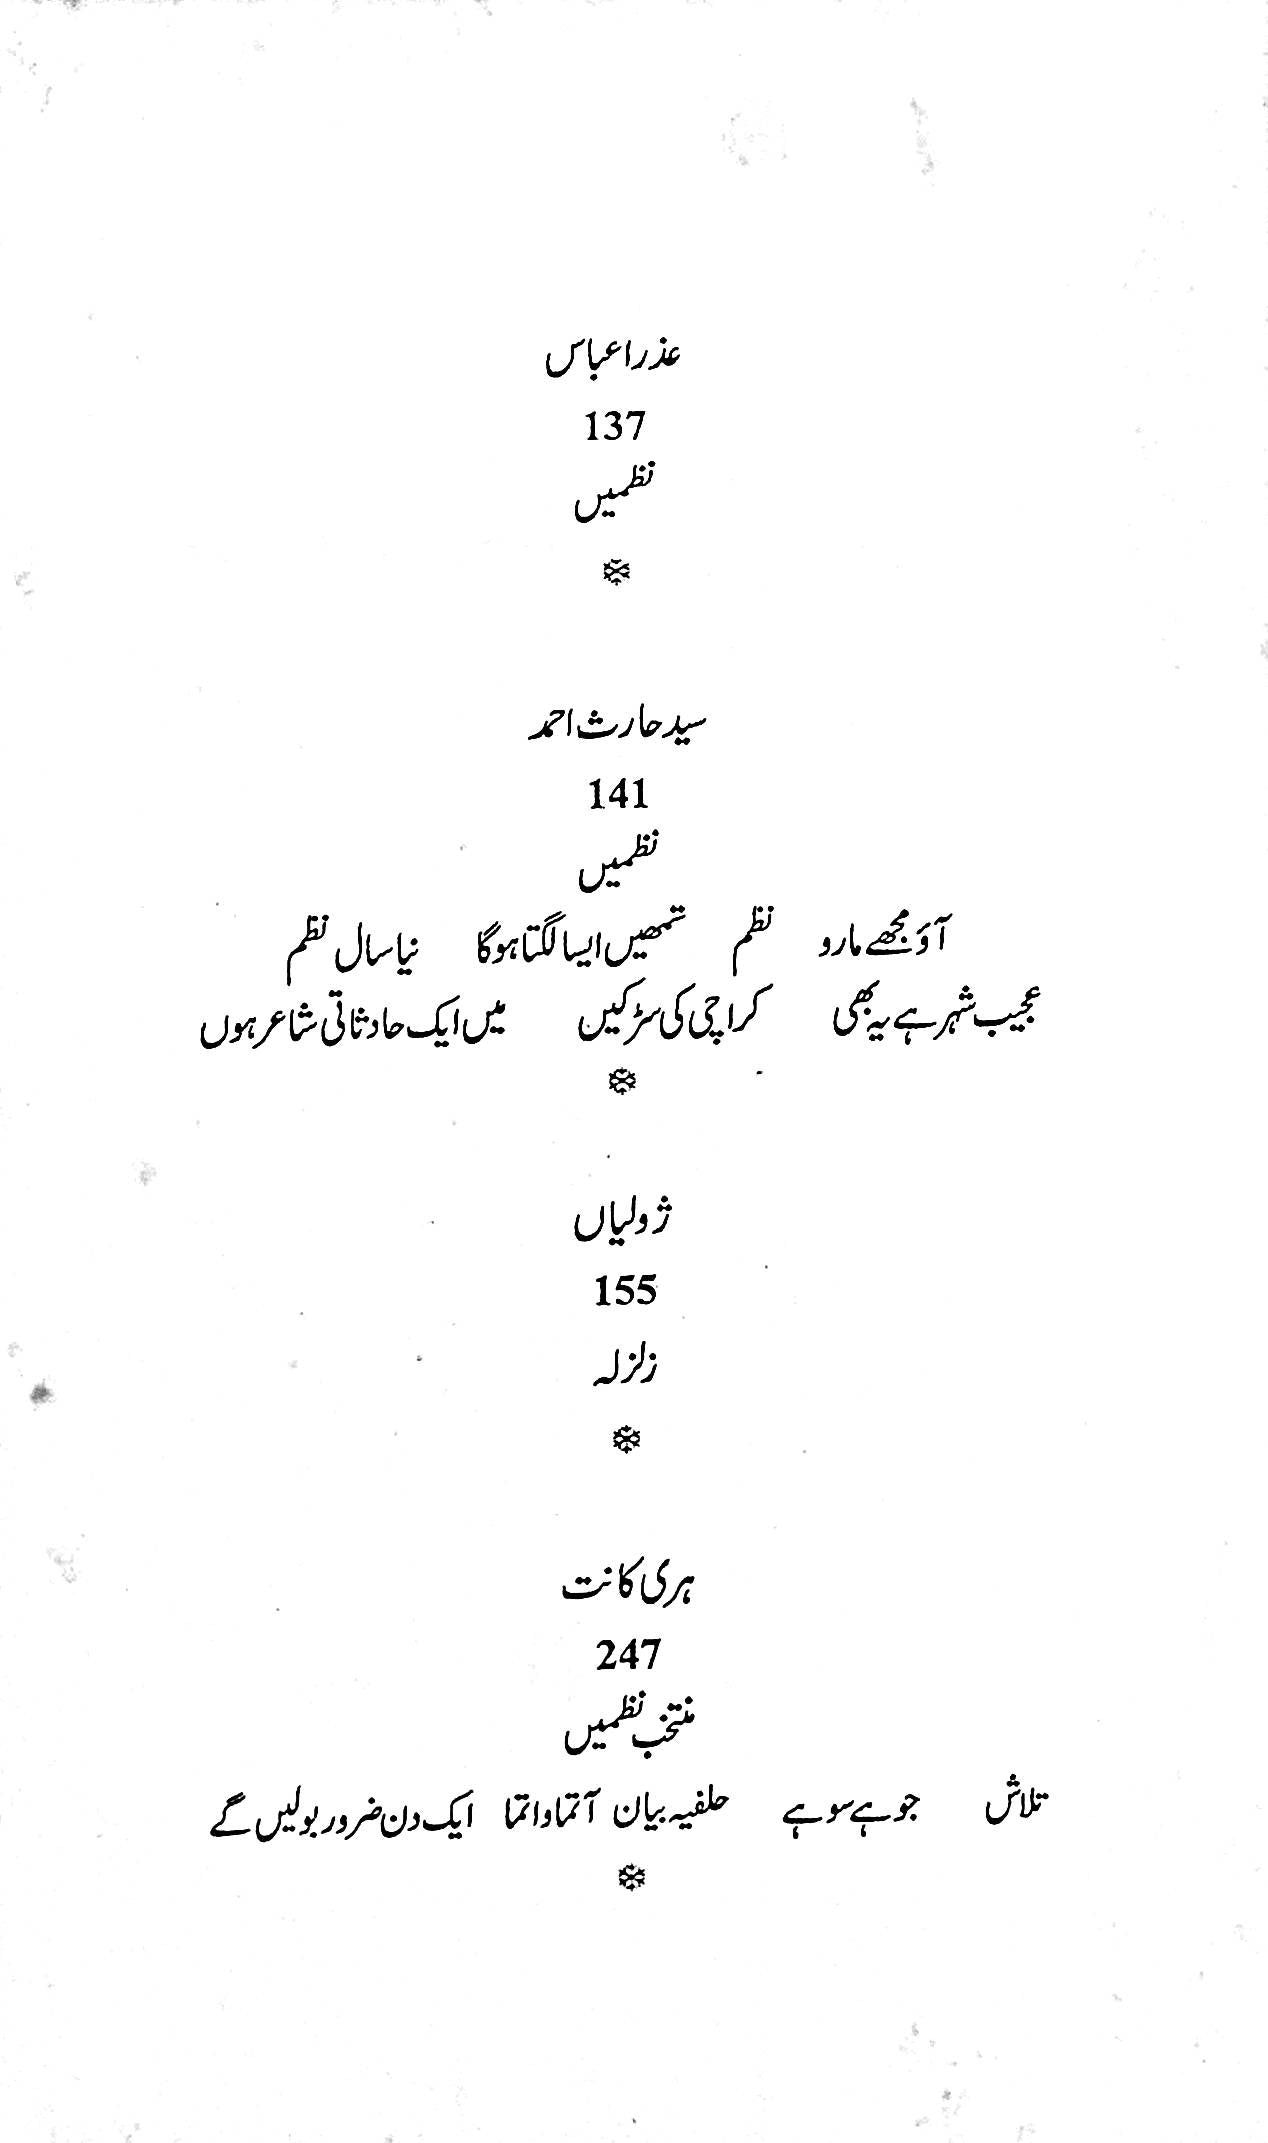 عذرا عباس
137
نظمیں
سید حارث احمد
141
نظمیں
آؤ مجھے مارو نظم تمھیں ایسا لگتا ہوگا نیا سال نظم
عجیب شہر ہے یہ بھی کراچی کی سڑکیں میں ایک حادثاتی شاعر ہوں
ژولیاں
155
زلزلہ
ہری کانت
247
منتخب نظمیں
تلاش جو ہے سو ہے حلفیہ بیان آتما واتما ایک دن ضرور بولیں گے